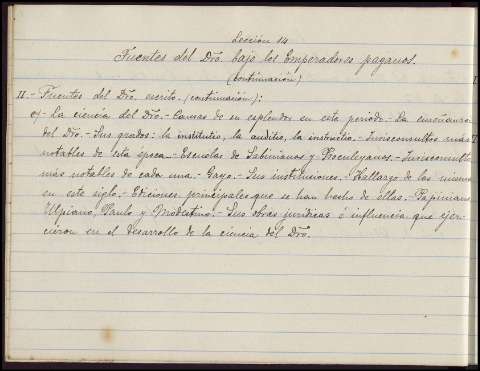 Lección 14
Fuentes del Dro. bajo los Emperadores paganos.
(continuación)
II.- Fuentes del Dro. escrito. (continuación):
c)- La ciencia del Dro.- Causas de su esplendor en este periodo.- La enseñanza
del Dro.- Sus grados: la institutio, la auditio, la instructio.- Jurisconsultos más
notables de esta época.- Escuelas de Sabinianos y Proculeyanos.- Jurisconsultos
más notables de cada una.- Gayo.- Sus instituciones.- Hallazgo de las mismas
en este siglo.- Ediciones principales que se han hecho de ellas.- Papiniano
Ulpiano, Paulo y Modestino.- Sus obras jurídicas é influencia que ejer-
cieron en el desarrollo de la ciencia del Dro.